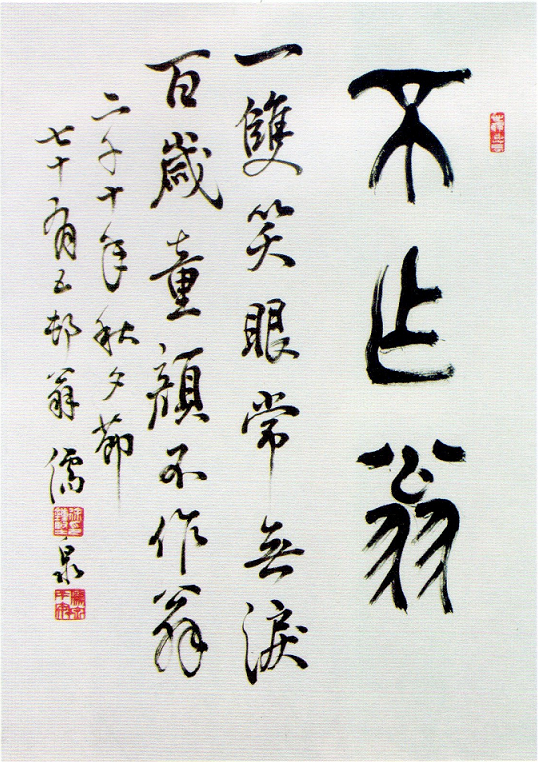 不乍翁
一雙笑眼常無淚
百歲童顔不作翁
二千十年秋夕節
七十有五邨翁 儒泉